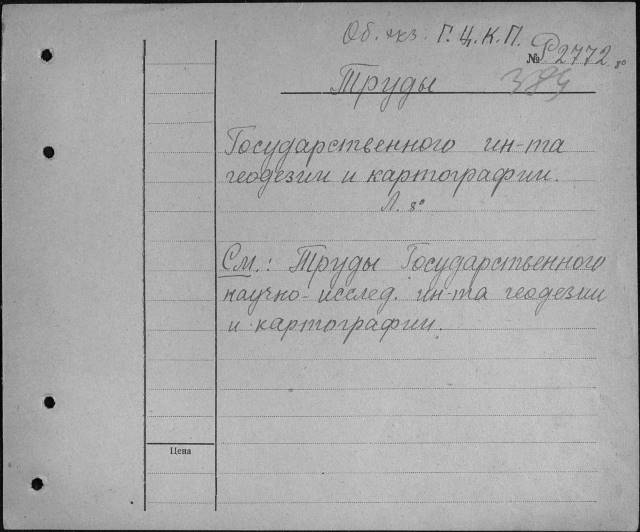 Об. экз. Г.Ц.К.П.
№ Р2772 8°
384
Труды
Государственного ин-та
геодезии и картографии.
Л. 8°
См.: Труды Государственного
научно-исслед. ин-та геодезии
и картографии.
Цена